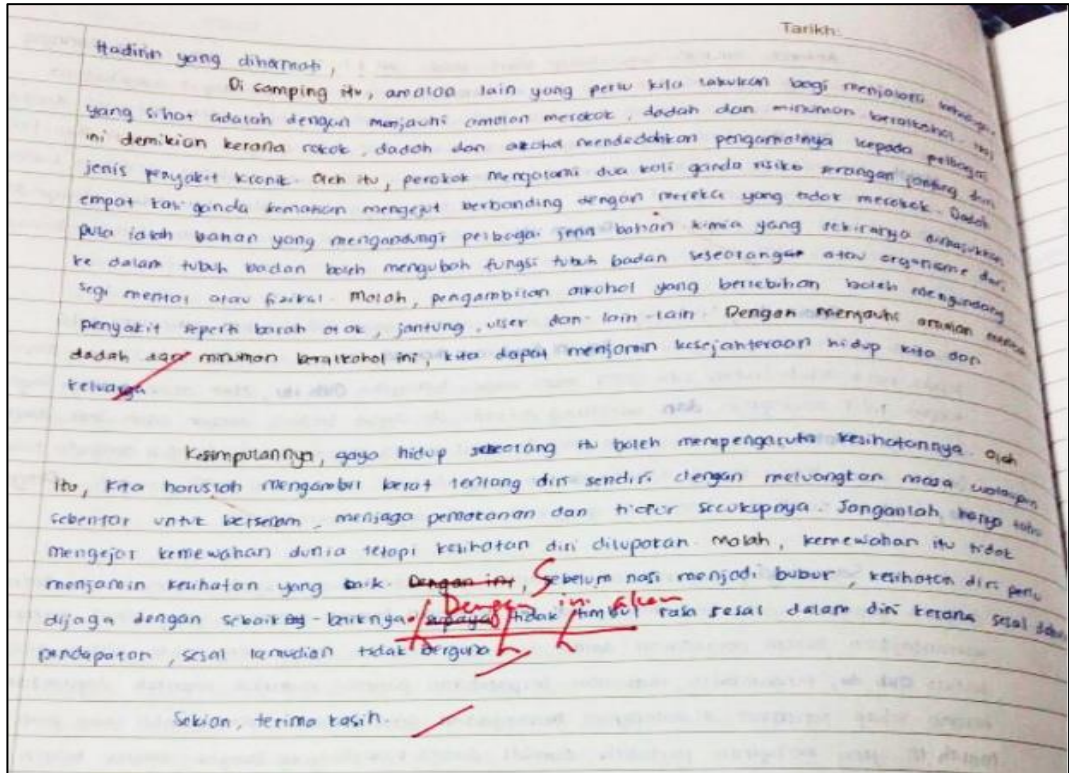 Tarikh:
Hadirin yang dihormati,
Di samping itu, amalan lain yang perlu kita lakukan bagi menjalani
yang sihat adalah dengan menjauhi amalan merokok, dadah dan minuman beralkohol. Ini
ini demikian kerana rokok, dadah dan akohol mendedahkan pengamalnya kepada pelbagai
jenis penyakit kronik. Oleh itu, perokok mengalami dua kali ganda risiko serangan jantung dan
empat kali ganda kematian mengejut berbanding dengan mereka yang tidak merokok. Dadah
pula ialah bahan yang mengandungi pelbagai jenis bahan kimia yang sekiranya dimasukkan
ke dalam tubuh badan boleh mengubah fungsi tubuh badan seseorang atau organisme dari
segi mental atau fizikal. Malah, pengambilan akohol yang berlebihan boleh mengundang
penyakit seperti barah otak, jantung, ulser dan lain-lain. Dengan menjauhi amalan
dadah dan minuman beralkohol ini, kita dapat menjamin kesejahteraan hidup kita dan
keluarga.
Kesimpulannya, gaya hidup seseorang itu boleh mempengaruhi kesihatannya. Oleh
itu, kita haruslah mengambil berat tentang diri sendiri dengan meluangkan masa walaupun
sebentar untuk bersenam, menjaga pemakanan dan tidur secukupnya. Janganlah hanya tahu
mengejar kemewahan dunia tetapi kesihatan diri dilupakan. Malah, kemewahan itu tidak
menjamin kesihatan yang baik. Dengan ini, Sebelum nasi menjadi bubur, kesihatan diri perlu
dijaga dengan sebaik-baiknya. supaya Dengan ini akan tidak timbul rasa sesal dalam diri kerana sesal dahulu
pendapatan, sesal kemudian tidak berguna.
Sekian, terima kasih.